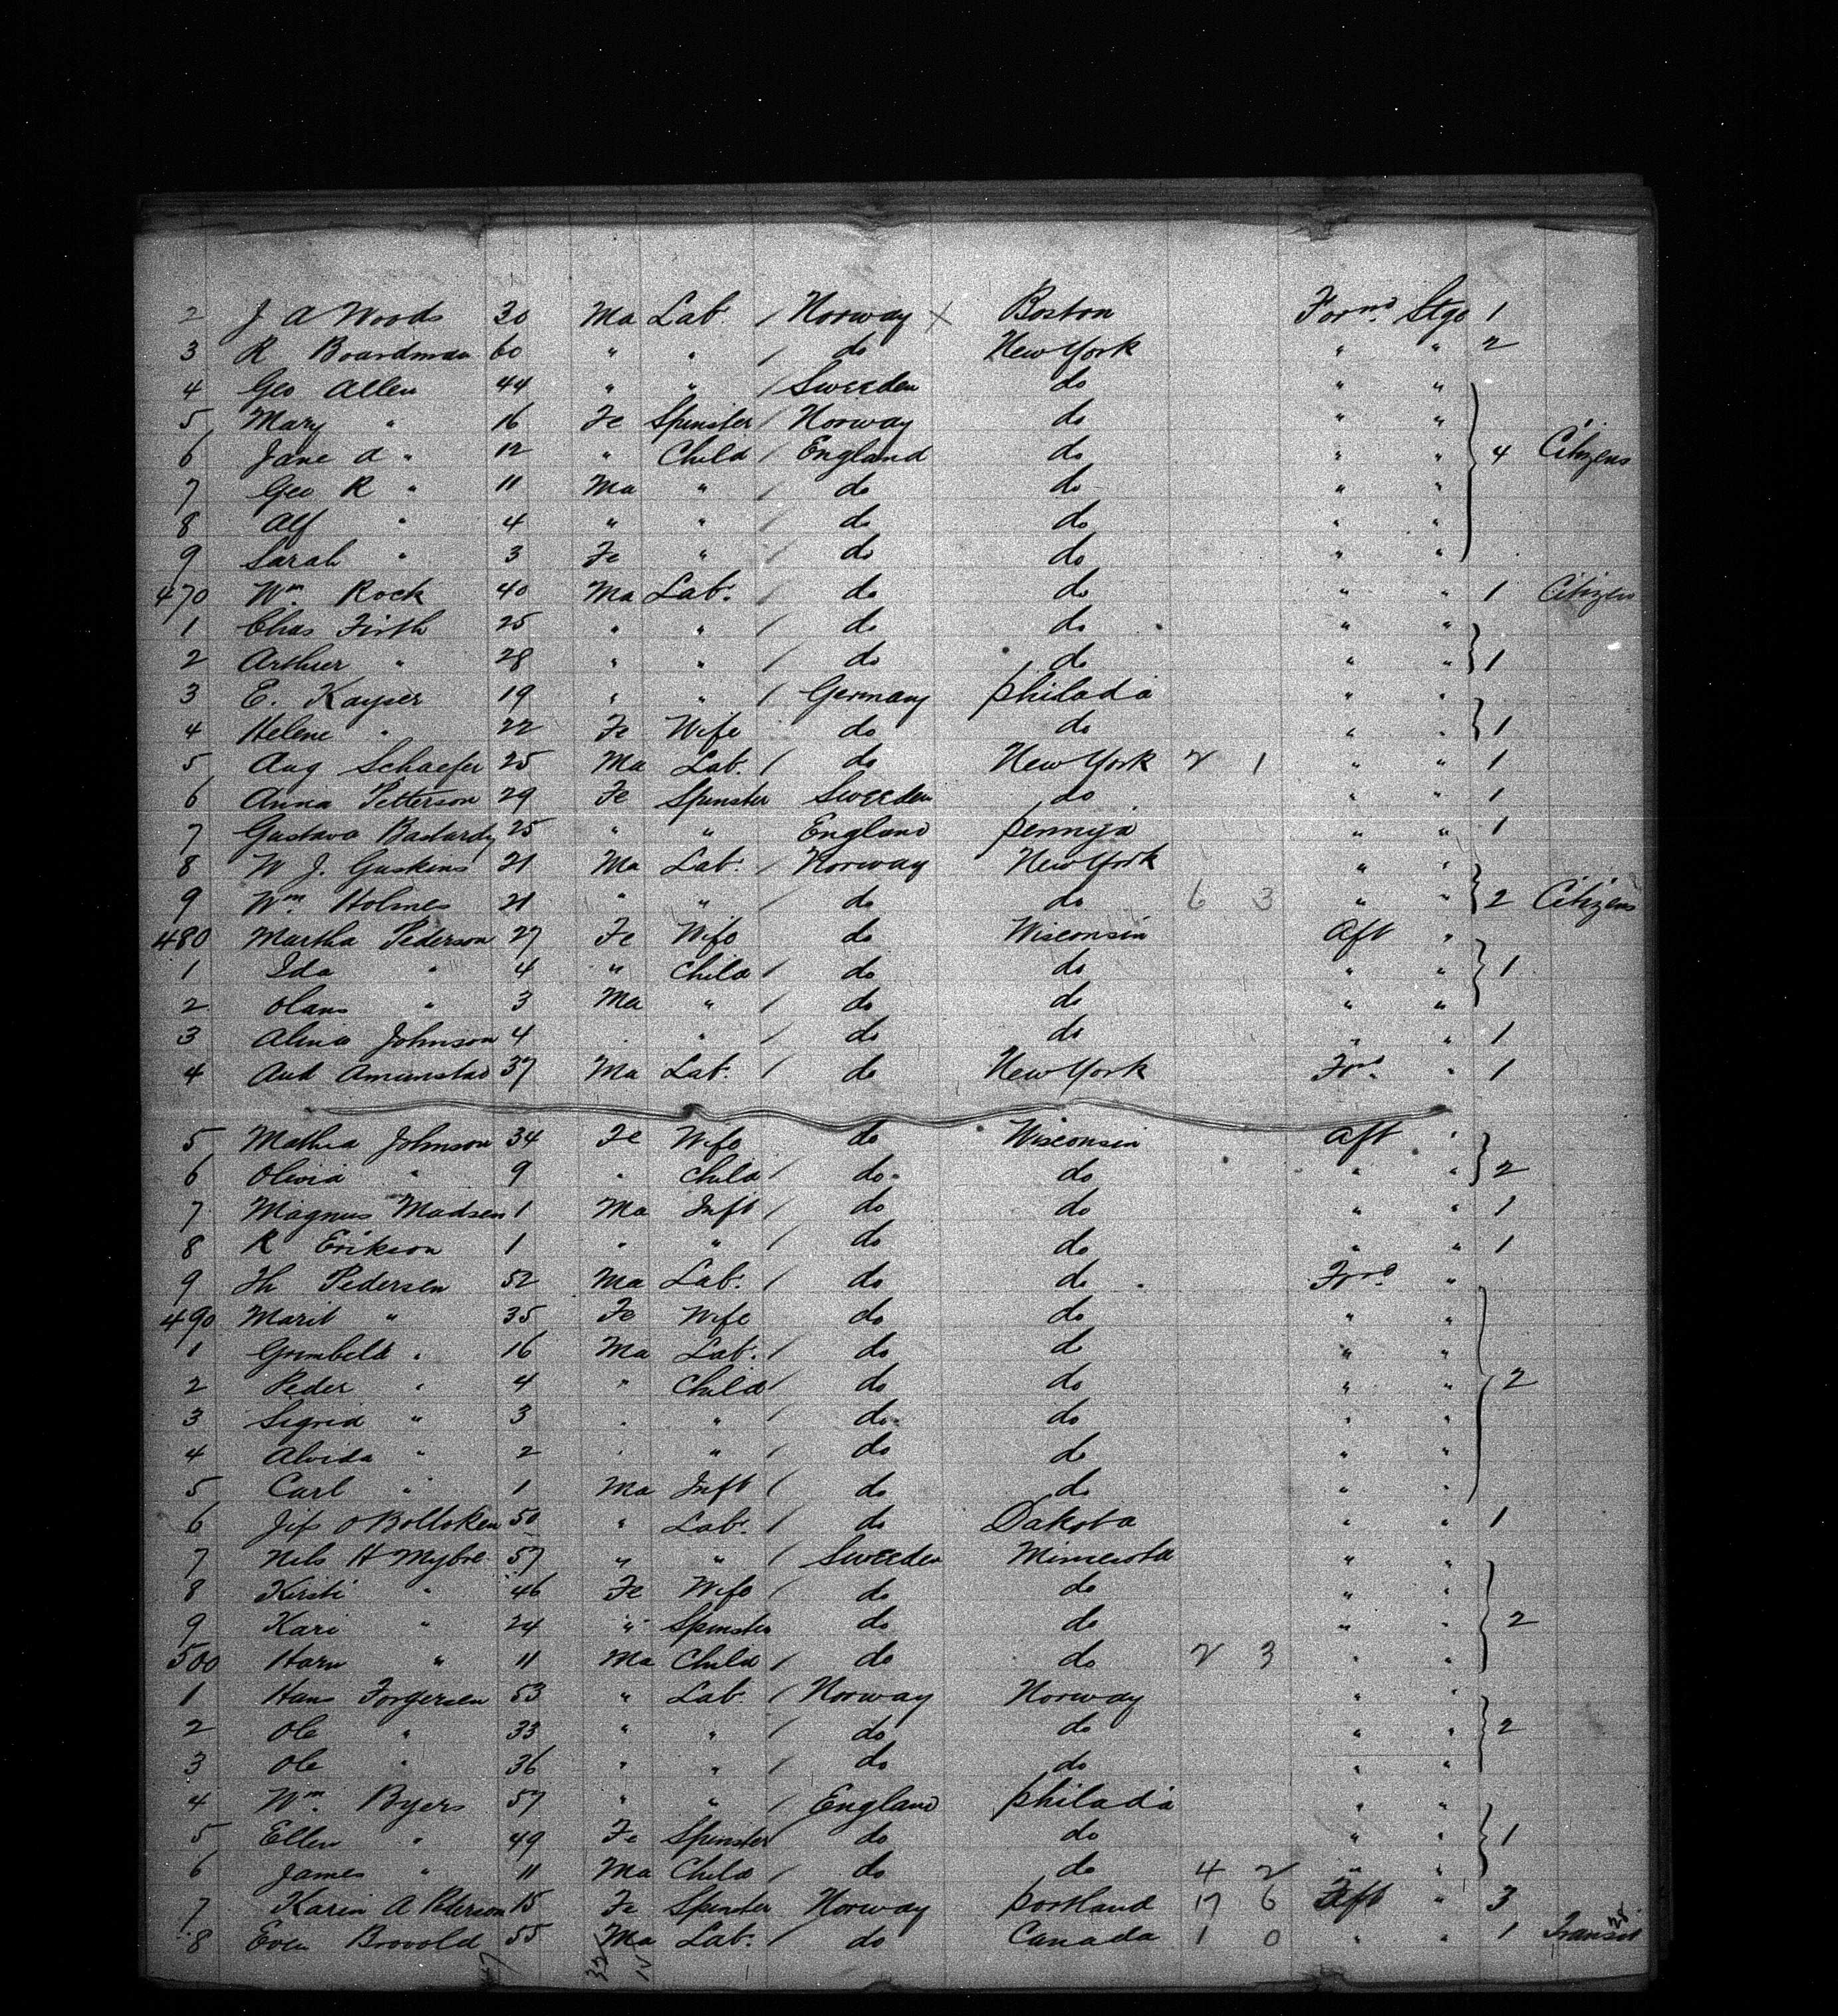 2 J A Woods 30 Ma Lab. / Norway X Boston Forwd. Stge 1
3 R Boardman 60 " " / do New York " " 2
4 Geo Allen 44 " " / Sweeden do " "
5 Mary " 16 Fe Spinster / Norway do " "
6 Jane A " 12 " Child / England do " " 4 Citizens
7 Geo R " 11 Ma " / do do " "
8 Alf " 4 " " / do do " "
9 Sarah " 3 Fe " / do do " "
470 Wm. Rock 40 Ma Lab. / do do " " 1 Citizen
1 Chas Firth 25 " " / do do " "
2 Arthur " 28 " " / do do " " 1
3 E. Kayser 19 " " / Germany Philada " "
4 Helene " 22 Fe Wife do do " " 1
5 Aug Schaefer 25 Ma Lab. / do New York 2 1 " " 1
6 Anna Petterson 29 Fe Spinster Sweeden do " " 1
7 Gustava 25 " " England " " 1
8 W J. Gaskens 21 Ma Lab. / Norway New York " "
9 Wm. Holmes 21 " " / do do 6 3 " " 2 Citizens
480 Martha Pederson 27 Fe Wife do Wisconsin Aft "
1 Ida " 4 " Child / do do " " 1
2 Olaus " 3 Ma " / do do " "
3 Alina Johnson 4 " " / do do " " 1
4 And Amunstad 37 Ma Lab. / do New York Fwd. " 1
5 Mathea Johnson 34 Fe Wife do Wisconsin Aft "
6 Olivia " 9 " Child / do do " " 2
7 Magnus Madsen 1 Ma Inft / do do " " 1
8 R Erikson 1 " " / do do " " 1
9 Th Pedersen 52 Ma Lab. / do do Fwd "
490 Marit " 35 Fe Wife do do " "
1 " 16 Ma Lab. / do do " "
2 Peder " 4 " Child / do do " " 2
3 Sigrid " 3 " " / do do " "
4 Alvida " 2 " " / do do " "
5 Carl " 1 Ma Inft / do do " "
6 50 " Lab. / do Dakota " " 1
7 Nils H Myhre 57 " " / Sweeden Minnesota " "
8 Kirsti " 46 Fe Wife / do do " "
9 Kari " 24 " Spinster do do " " 2
500 " 11 Ma Child / do do 2 3 " "
1 Hans Torgersen 53 " Lab. / Norway Norway " "
2 Ole " 33 " " / do do " " 2
3 Ole " 36 " " / do do " "
4 Wm. Byers 57 " " / England Philada " "
5 Ellen " 49 Fe Spinster do do " " 1
6 James " 11 Ma Child / do do 4 2 " "
7 Karin A Pederson 15 Fe Spinster Norway Portland 17 6 Aft " 3
8 Even Brovold 55 Ma Lab. / do Canada 1 0 " " 1 Transit